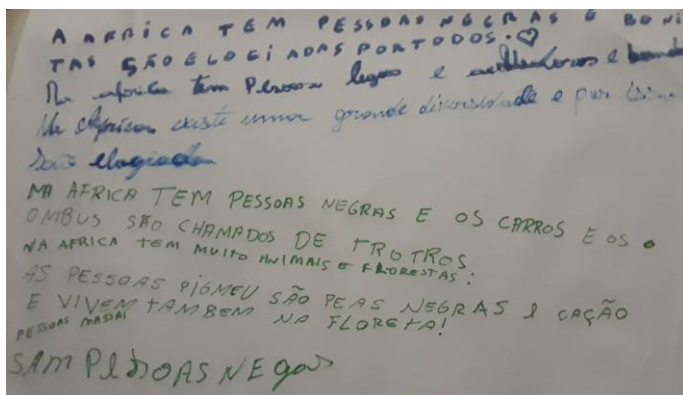 A AFRICA TEM PESSOAS NEGRAS E BONI
TAS SÃO ELOGIADAS PORTODOS.♡
Na africa tem Pessoas legais e e
Na existe uma grande diversidade e por
São elogiada
NA AFRICA TEM PESSOAS NEGRAS E OS CARROS E OS O
OMBUS SÃO CHAMADOS DE TROTROS
NA AFRICA TEM MUITO ANIMAIS E FLORESTAS:
AS PESSOAS PIGMEU SÃO PEAS NEGRAS E CAÇÃO
E VIVEM TAMBEM NA FLORETA!
PESSOAS MASSAI
SAM NEGAS